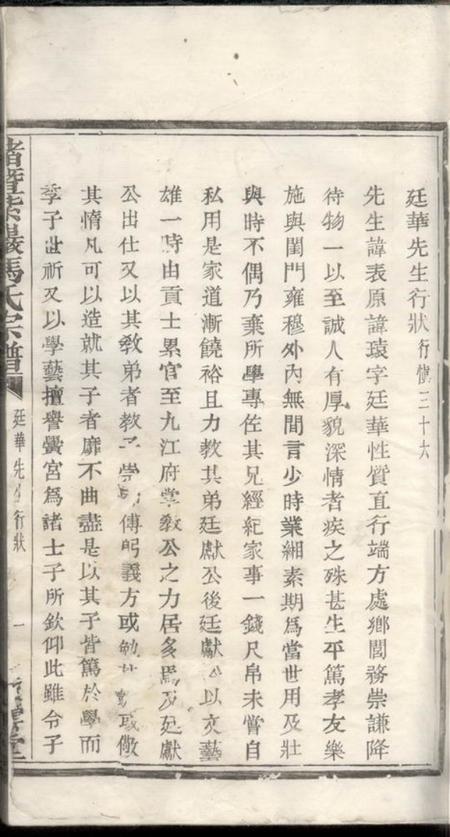 廷華先生行狀行慎三十六
先生諱表原諱瑗字廷華性質直行端方處鄉閭務崇謙降
待物一以至誠人有厚貌深情者疾之殊甚生平篤孝友樂
施與閨門雍穆外內無間言少時業緗素期爲當世用及壯
與時不偶乃棄所學專佐其兄經紀家事一錢尺帛未嘗自
私用是家道漸饒裕且力教其弟廷獻公後廷獻公以文藝
雄一時由貢士累官至九江府掌教公之力居多焉及廷獻
公出仕又以其教弟者教子崇傅躬義方或勉或儆
其惰凡可以造就其子者靡不曲盡是以其子皆篤於學而
季子世祈又以學藝擅譽黌宮爲諸士子所欽仰此雖令子
諸暨紫巖馬氏宗譜
廷華先生行狀
一